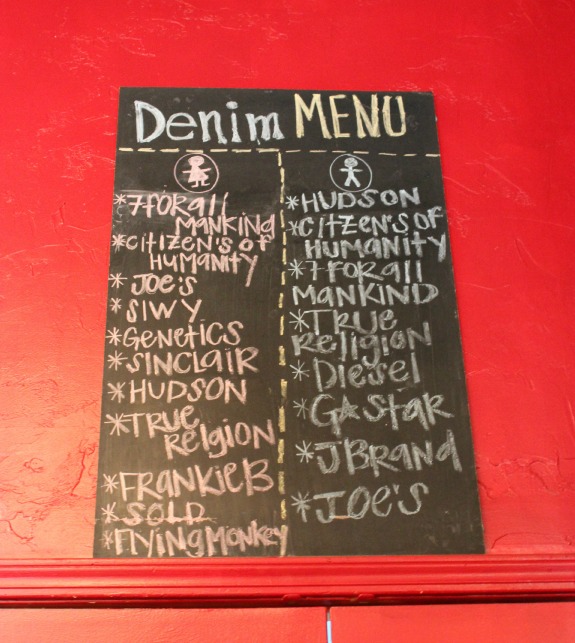 Denim MENU
*7FORall
MANKIND
*CITIZEN'S OF
HUMANITY
*JOE'S
*SIWY
*GENETICS
*SINCLAIR
*HUDSON
*TRUE
RelgION
*FRANKIEB
*SOLD
*FlYINgMONKEY
*HUDSON
*CITZEN'S OF
HUMANITY
*7FORall
MANKIND
*TRUE
RElIgION
*DIESEl
*G★StaR
*JBRaNd
*JOE'S